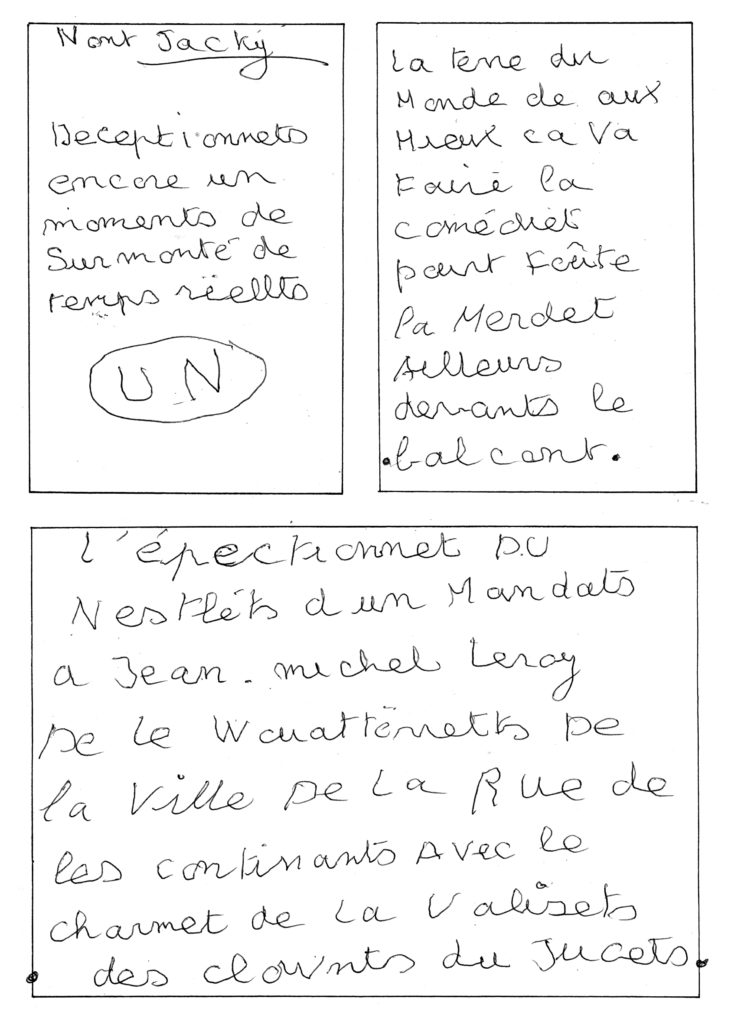 Nont Jacky
Deceptionnets
encore un
moments de
Surmonté de
temps rëellts
UN
La terre du
Monde de aux
Mieux ca va
Faire la
comédiet
pourt Foûte
la Merdet
Ailleurs
devants le
.balcont.
L'épectionnet DU
Nestléts d'un Mandats
a Jean-michel Leroy
De Le Wouattërnetts De
la Ville De La Rue de
les continants Avec le
charmet de La Valisets
. des clownts du Jucets.